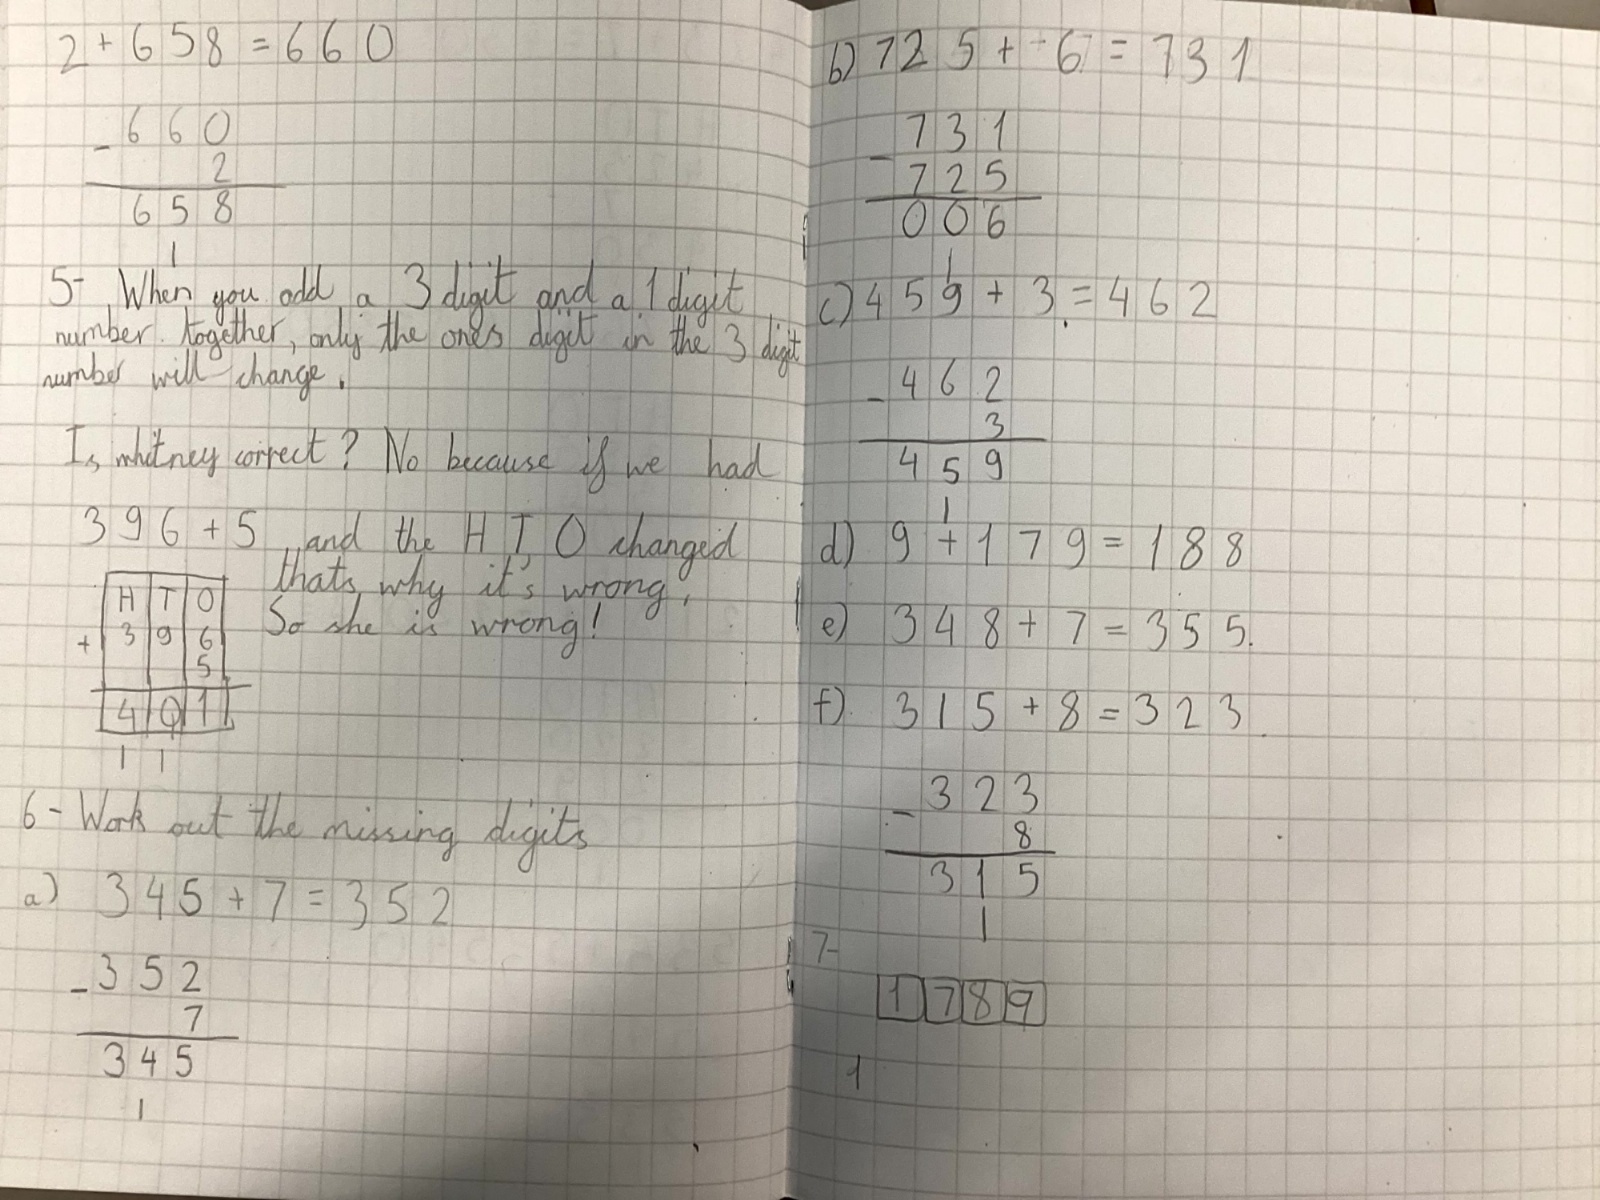 2 + 658 = 660
- 660
2
658
1
5- When you add a 3 digit and a 1 digit
number together, only the ones digit in the 3 digit
number will change.
Is whitney correct? No because if we had
396 + 5 and the H T O changed
thats why it's wrong,
So she is wrong!
H T O
+ 3 9 6
5
4 0 1
1 1
6- Work out the missing digits
a) 345 + 7 = 352
- 352
7
345
1
b) 725 + 6 = 731
731
- 725
006
1
c) 459 + 3 = 462
- 462
3
459
1
d) 9 + 179 = 188
e) 348 + 7 = 355.
f) 315 + 8 = 323
- 323
8
315
1
7-
1 7 8 9
1